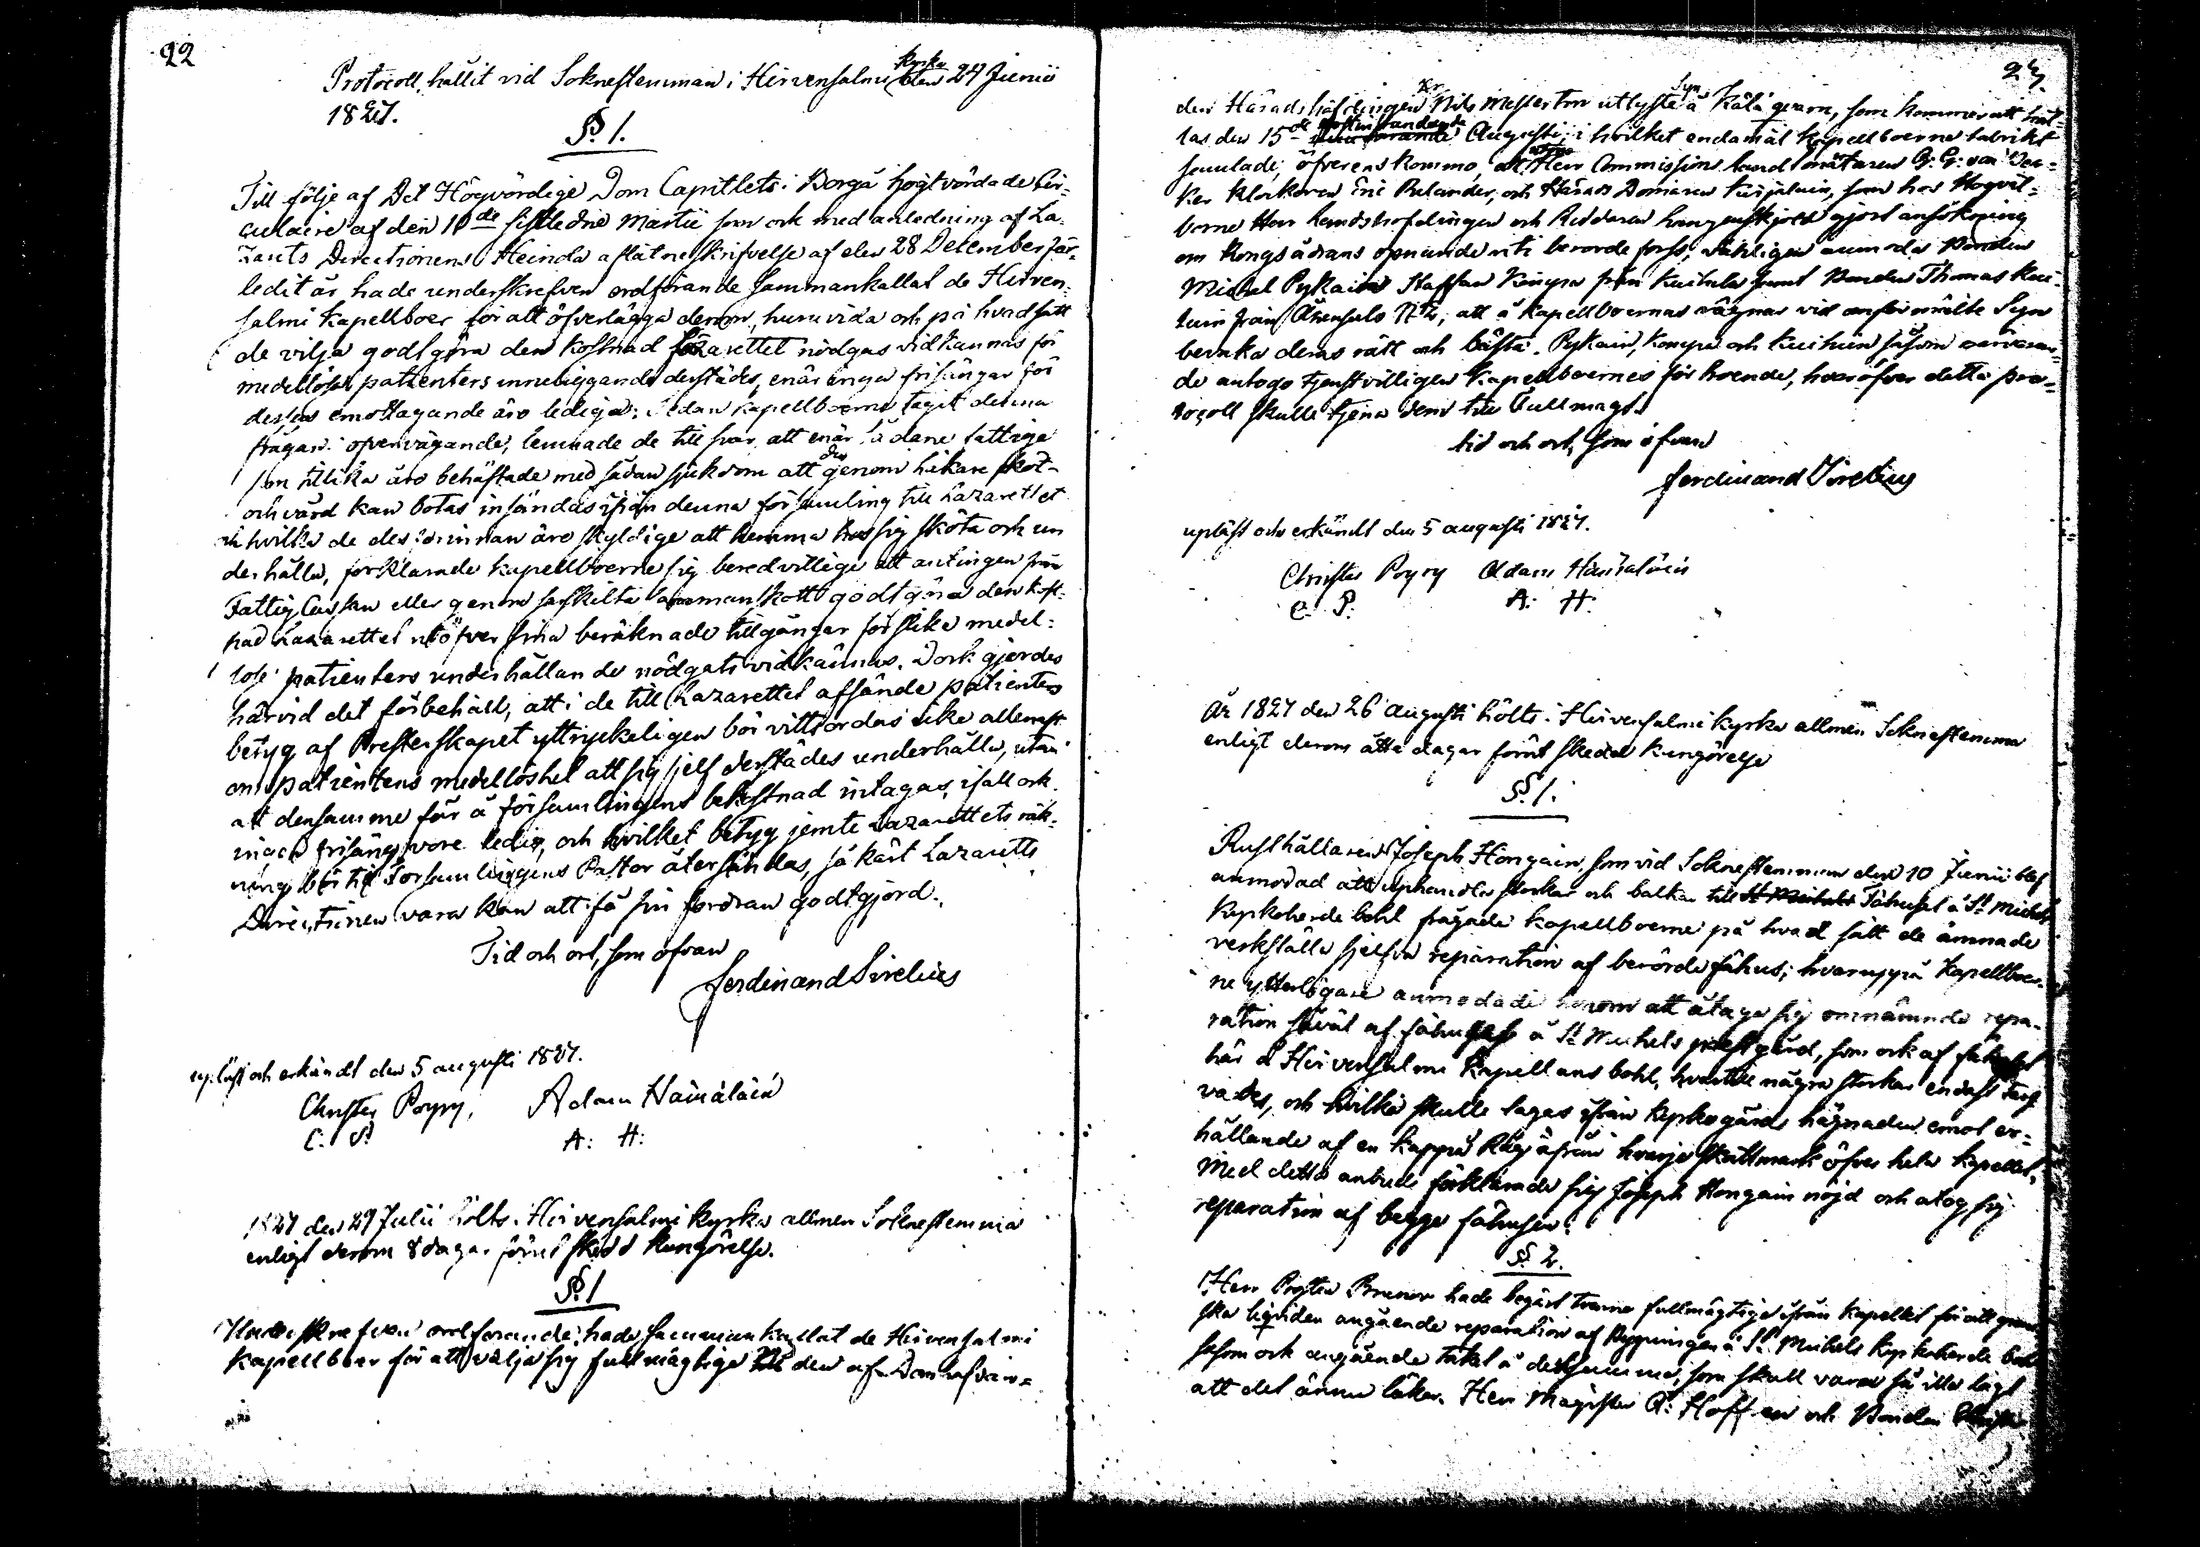 22
Protocoll, hållit vid Soknestemman i Hirvensalmi kyrka den 24 Junii
1827.
§ 1.
Till följe af Det Högvördige Dom Capitlets i Borgå högtvördade Cir-
culaire af den 10de sistledne Martii som ock med anledning af La-
zaretts Directionens i Heinola aflåtne skrifvelse af den 28 December för-
ledit år hade underskrefven ordförande sammankallat de Hirven-
salmi Kapellboer för att öfverlägga derom, huruvida och på hvad sätt
de vilja godtgöra den kostnad Lazarettet nödgas vidkännas för
medellösa patienters inneliggande derstädes, enär inga frisängar för
dessas emottagande äro lediga; Sedan kapellboerne tagit denna
frågan i öfvervägande, lemnade de till svar, att enär sådane fattige
som tillika äro behäftade med sådan sjukdom att den genom läkare sköt-
och vård kan botas insändas ifrån denna församling till Lazarettet
och hvilka de dessförinnan äro skyldige att hemma hos sig sköta och un
derhålla, förklarade kapellboerne sig beredvillige att antingen från
Fattig Cassan eller genom särskilta sammanskott godtgöra den kost-
nad Lazarettet utöfver sina beräknade tillgångar för slika medel-
lösa patienters underhållande nödgats vidkännas. Dock gjordes
härvid det förbehåll, att i de till Lazarettet afsände patienters
betyg af Presterskapet uttryckeligen bör vittsordas icke allenast
om patientens medellöshet att sig sjelf derstädes underhålla, utan
att densamme får å församlingens bekostnad intagas, ifall ock
ingen frisäng vore ledig, och hvilket betyg jemte Lazarettets räk-
ning bör till Församlingens Pastor återsändas, så kärt Lazaretts
Directionen vara kan att få sin fordran godtgjord.
Tid och ort, som ofvan
Ferdinand Sirelius
upläst och erkändt den 5 augusti 1827.
Christer Poyry, Adam Hämäläin
C. P. A: H:
1827 den 29 Julii hölts i Hirvensalmi kyrka allmen Soknestemma
enligt derom 8 dagar förut skedd kungörelse.
§ 1
Underskrefven ordförande hade sammankallat de Hirvensalmi
Kapellboer för att välja sig fullmägtige till den af Domhafvan-
23.
den Häradshöfdingen Hr Nils Mesterton utlyste Syn å Kälä qvarn, som kommer att hål-
las den 15de nästinstundande Augusti; i hvilket endamål Kapellboerne talrikt
samlade, öfverenskommo, att Herr Commissions landtmätaren G: G: von
Klockaren Pulander, och Härads Domaren som hos Högväl-
borne Herr Landshöfdingen och Riddaren gjort ansökning
om Kongsådrans öpnande uti berörde forss, äskligen anmoda Bonden
Michel Pykäin Staffan från Kuitula samt Bonden Thomas
från N 2, att å Kapellboernas vägnar vid anförmälte Syn
bevaka deras rätt och bästa. Pykäin, och såsom närvaran-
de antogo tjenstvilligen Kapellboernes förtroende, hvaröfver detta pro-
tocoll skulle tjena dem till Fullmagt.
tid och ort, som ofvan
Ferdinand Sirelius
upläst och erkändt den 5 augusti 1827.
Christer Poyry Adam Hämäläin
C. P. A: H:
År 1827 den 26 augusti hölts i Hirvensalmi kyrka allmen Soknestemma
enligt derom åtta dagar förut skedd kungörelse
§. 1.
Rusthållaren Joseph Hongain, som vid Soknestemman den 10 Junii blef
anmodad att uphandla stockar och balkar till Fähuset å St Michels
Kyrkoherde bohl frågade kapellboerne på hvad sätt de ämnade
verkställa sjelfva reparation af berörde fähus; hvaruppå Kapellboer-
ne ytterligare anmodade honom att åtaga sig omnämnde repa-
ration såväl af fähuset å St Michels prestgård, som ock af fähuset
här å Hirvensalmi Kapellans bohl, hvartill några stockar endast
vades, och hvilka skulle tagas ifrån Kyrkogårds hägnaden emot er-
hållande af en kappa Råg ifrån hvarje skattmark öfver hela Kapellet,
Med detta anbud förklarade sig Joseph Hongain nöjd och åtog sig
reparation af begge fähusen.
§. 2.
Herr Prosten Brunow hade begärt tvenne fullmägtige ifrån Kapellet för att gran-
ska liqviden angående reparation af Byggningen å St Michels Kyrkoherde bohl
såsom ock angående taket å densamma, som skall vara så illa lagt
att det ännu läker. Herr Magister A: Hoffren och Bonden